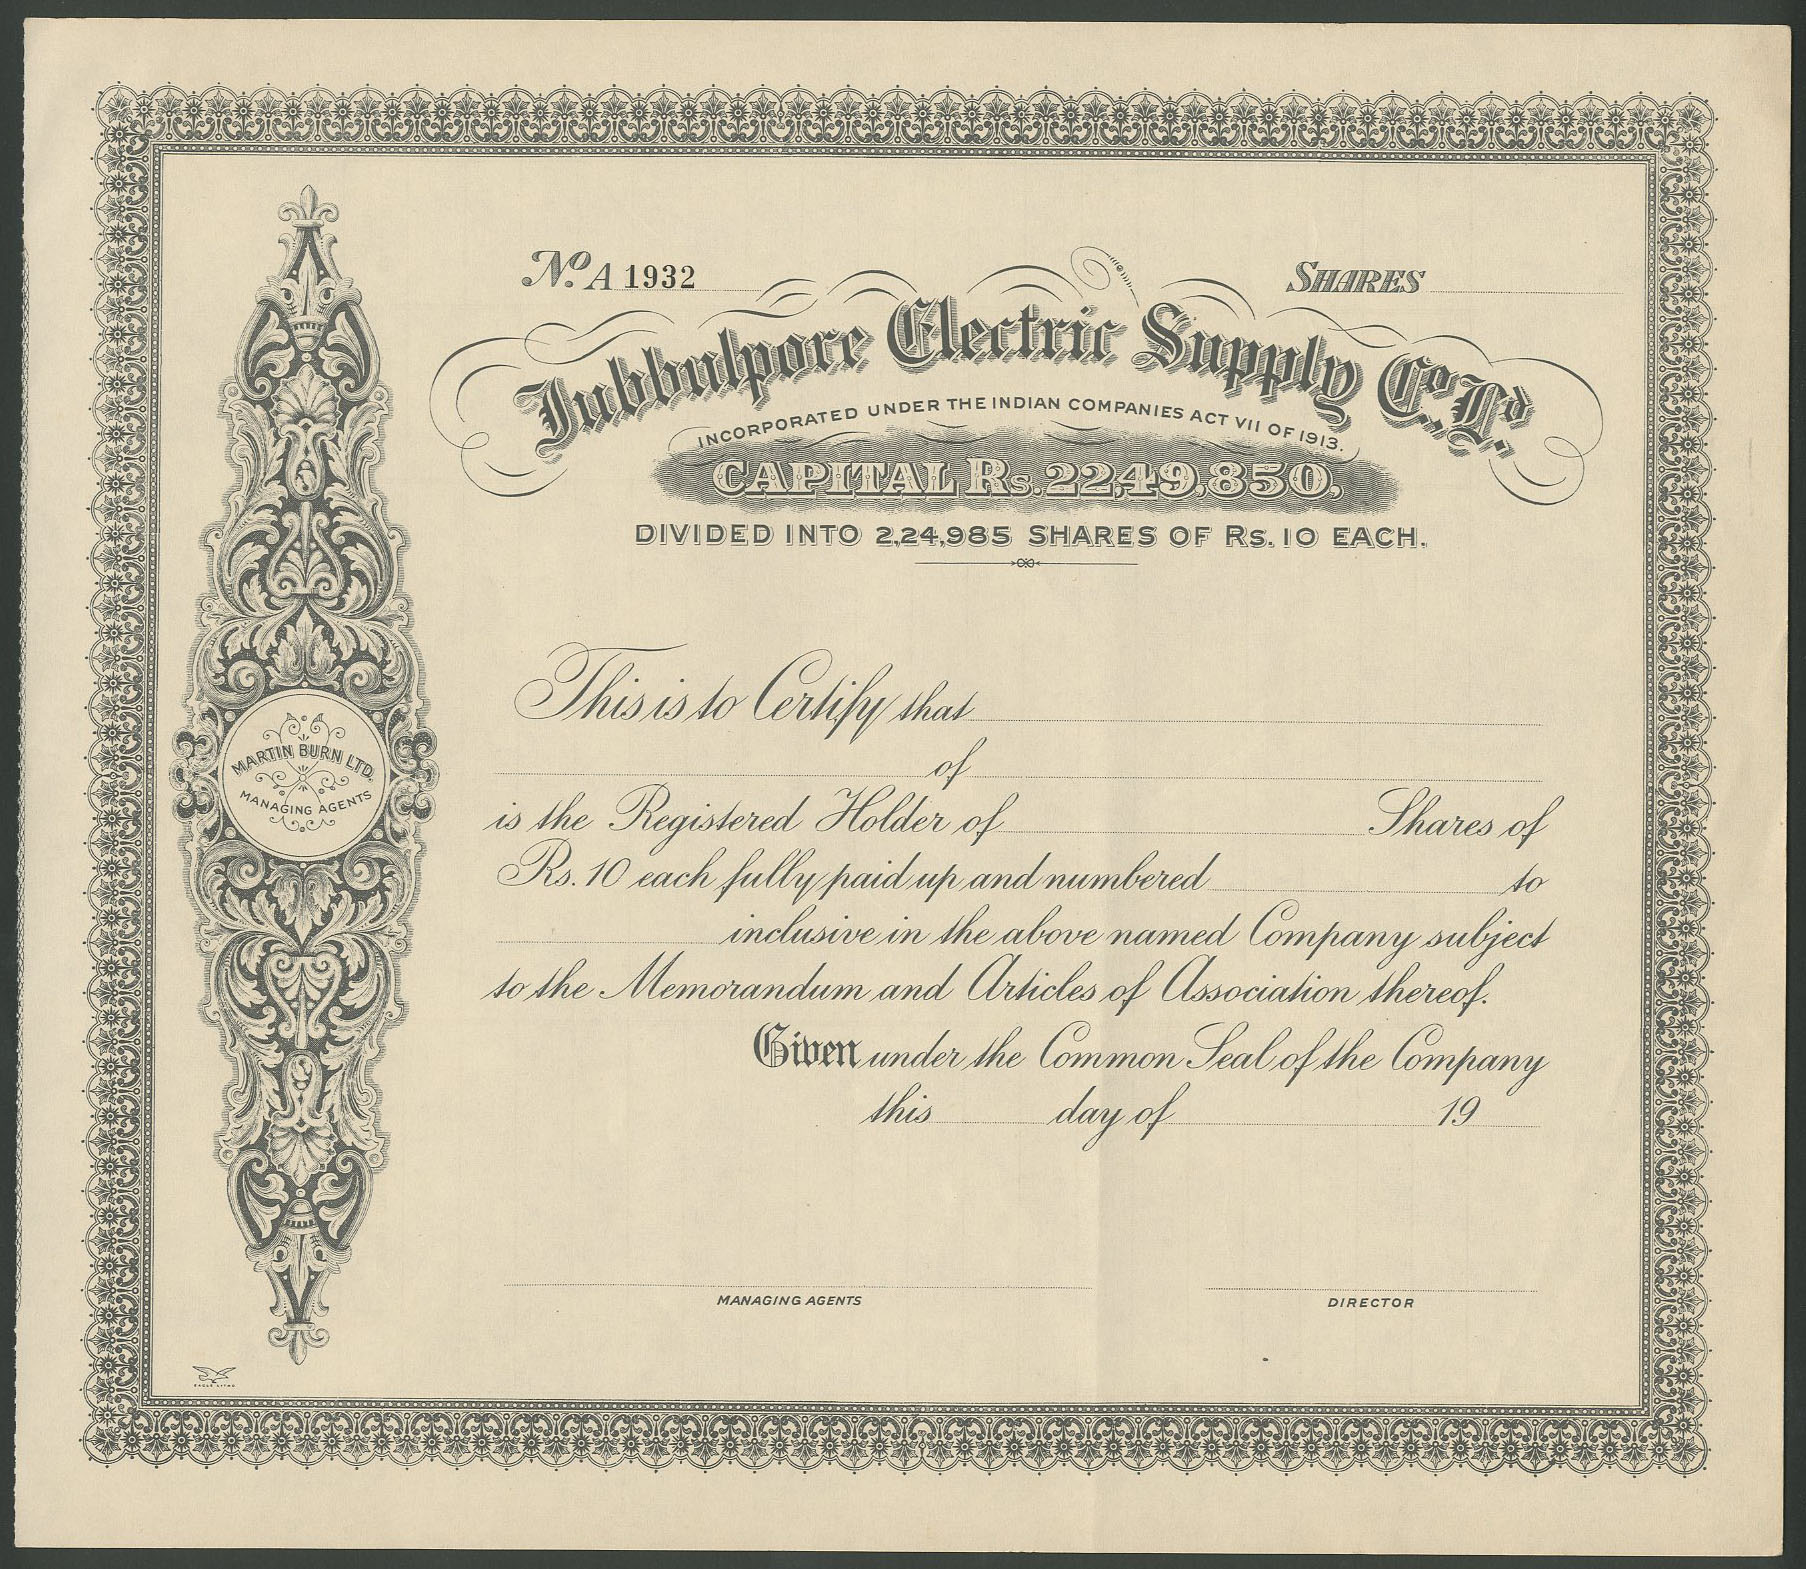 No. A 1932
SHARES
Jubbulpore Electric Supply Co. Ld.
INCORPORATED UNDER THE INDIAN COMPANIES ACT VII OF 1913.
CAPITAL Rs. 22,49,850,
DIVIDED INTO 2,24,985 SHARES OF Rs. 10 EACH.
This is to Certify that
of
is the Registered Holder of Shares of
Rs. 10 each fully paid up and numbered to
inclusive in the above named Company subject
to the Memorandum and Articles of Association thereof.
Given under the Common Seal of the Company
this day of 19
MARTIN BURN LTD.
MANAGING AGENTS
MANAGING AGENTS
DIRECTOR
EAGLE LITHO